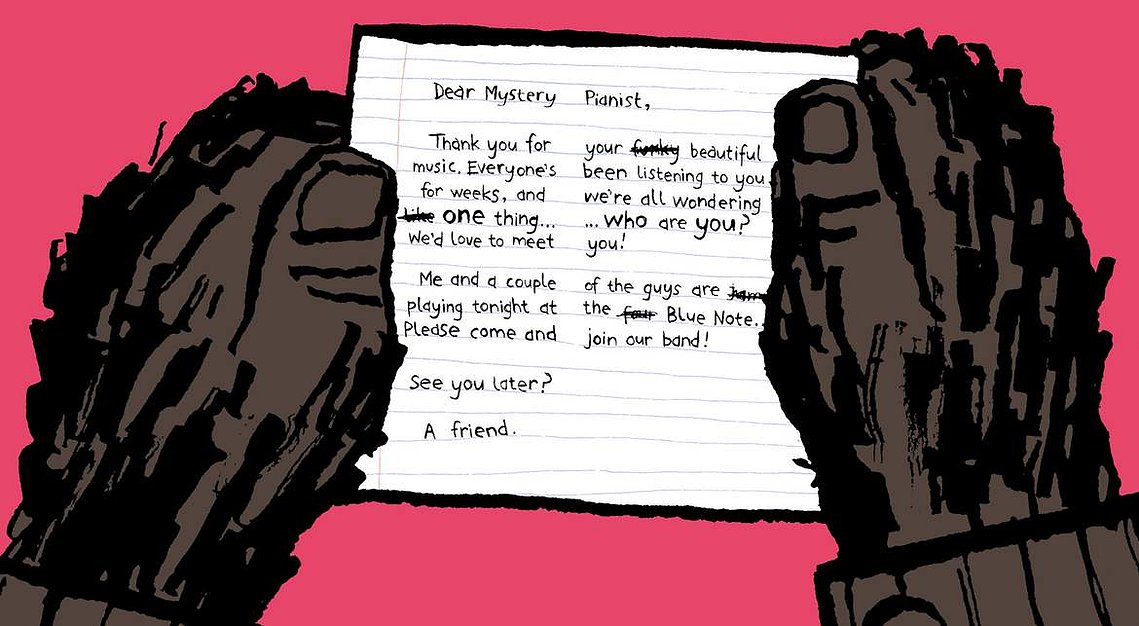 Dear Mystery Pianist,
Thank you for your funky beautiful
music. Everyone's been listening to you
for weeks, and we're all wondering
like one thing... ...who are you?
We'd love to meet you!
Me and a couple of the guys are
playing tonight at the four Blue Note..
Please come and join our band!
See you later?
A friend.